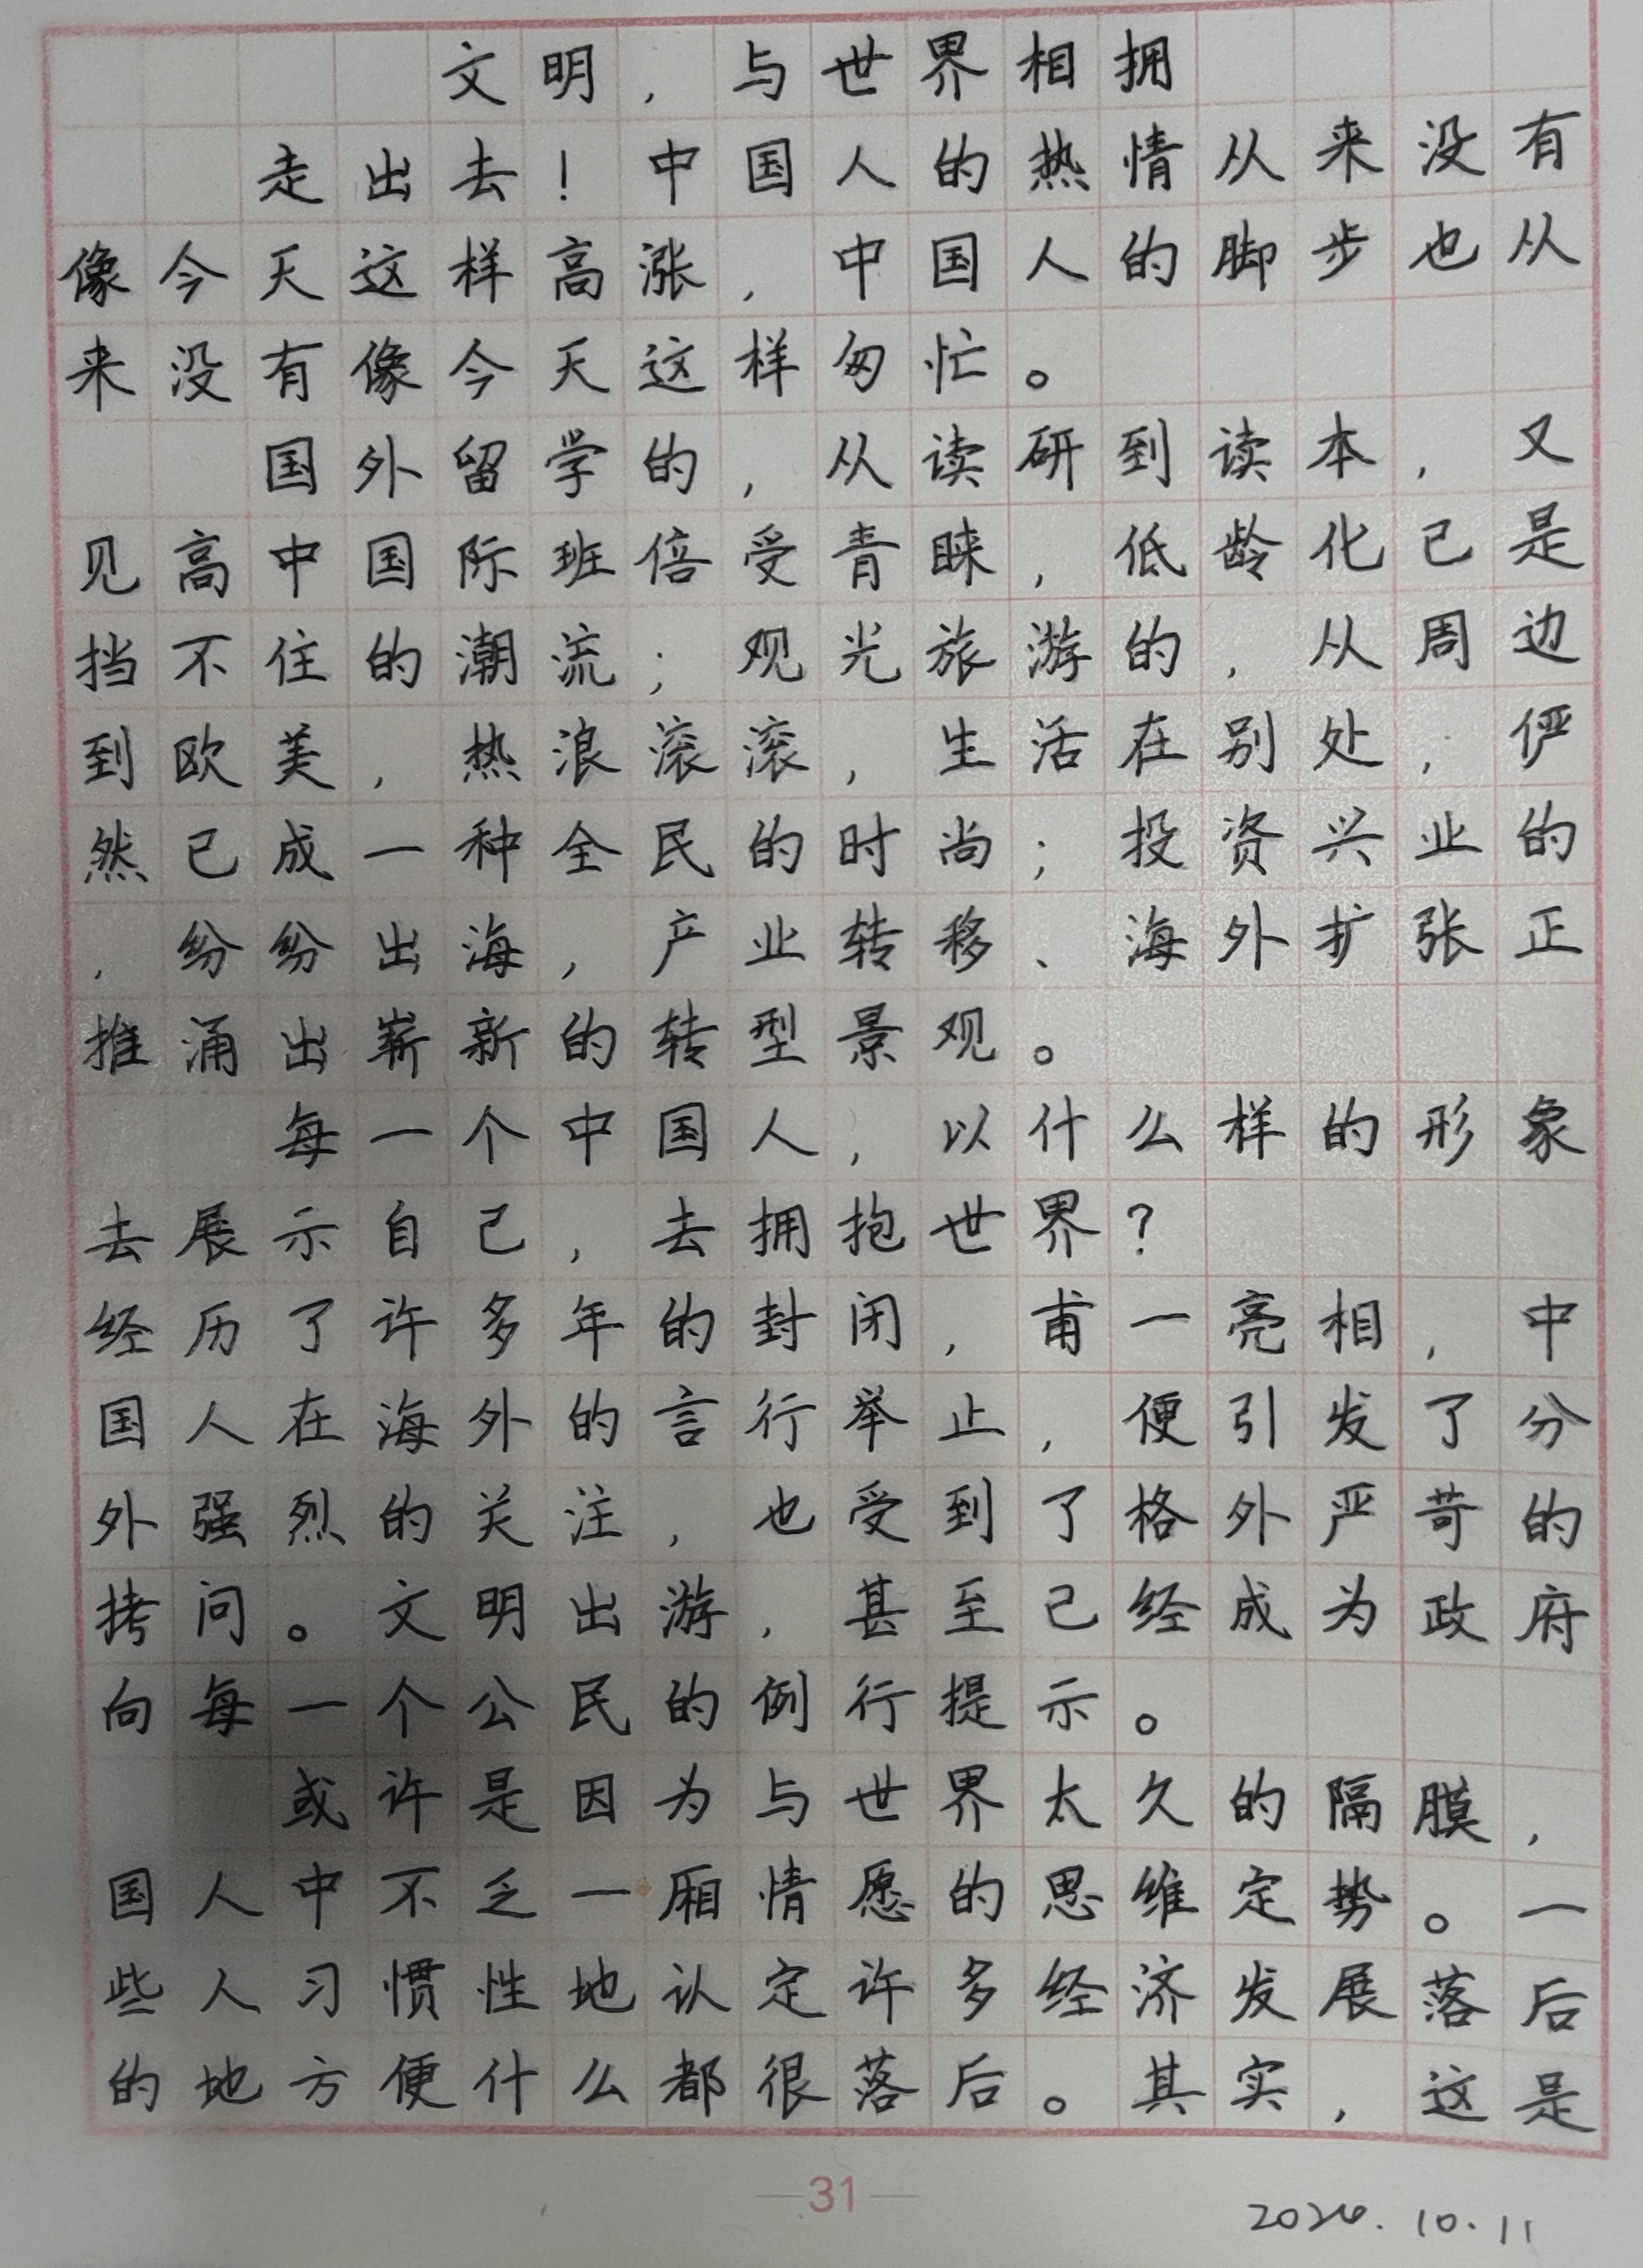 文明，与世界相拥
走出去！中国人的热情从来没有
像今天这样高涨，中国人的脚步也从
来没有像今天这样匆忙。
国外留学的，从读研到读本，又
见高中国际班倍受青睐，低龄化已是
挡不住的潮流；观光旅游的，从周边
到欧美，热浪滚滚，生活在别处，俨
然已成一种全民的时尚；投资兴业的
，纷纷出海，产业转移、海外扩张正
推涌出崭新的转型景观。
每一个中国人，以什么样的形象
去展示自己，去拥抱世界？
经历了许多年的封闭，甫一亮相，中
国人在海外的言行举止，便引发了分
外强烈的关注，也受到了格外严苛的
拷问。文明出游，甚至已经成为政府
向每一个公民的例行提示。
或许是因为与世界太久的隔膜，
国人中不乏一厢情愿的思维定势。一
些人习惯性地认定许多经济发展落后
的地方便什么都很落后。其实，这是
31
2024.10.11